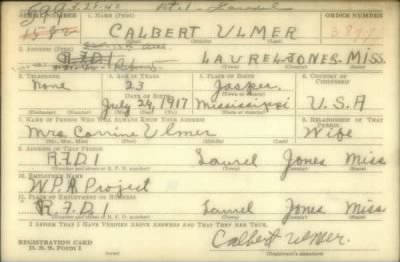 SERIAL NUMBER 1. NAME (Print) ORDER NUMBER
CALBERT ULMER
(First) (Middle) (Last)
2. ADDRESS (Print)
R.F.D 1 LAUREL-JONES. MISS.
3. TELEPHONE 4. AGE IN YEARS 5. PLACE OF BIRTH 6. COUNTRY OF CITIZENSHIP
None 23 Jasper
DATE OF BIRTH
July 24, 1917 Mississippi U.S.A
7. NAME OF PERSON WHO WILL ALWAYS KNOW YOUR ADDRESS 8. RELATIONSHIP OF THAT PERSON
Mrs Corrine Ulmer Wife
(Mr., Mrs., Miss) (First) (Middle) (Last)
9. ADDRESS OF THAT PERSON
R.F.D 1 Laurel Jones Miss
10. EMPLOYER'S NAME
W.P.A Project
11. PLACE OF EMPLOYMENT OR BUSINESS
R.F.D 1 Laurel Jones Miss
I AFFIRM THAT I HAVE VERIFIED ABOVE ANSWERS AND THAT THEY ARE TRUE.
REGISTRATION CARD
D. S. S. Form 1
Calbert Ulmer.
(Registrant's signature)